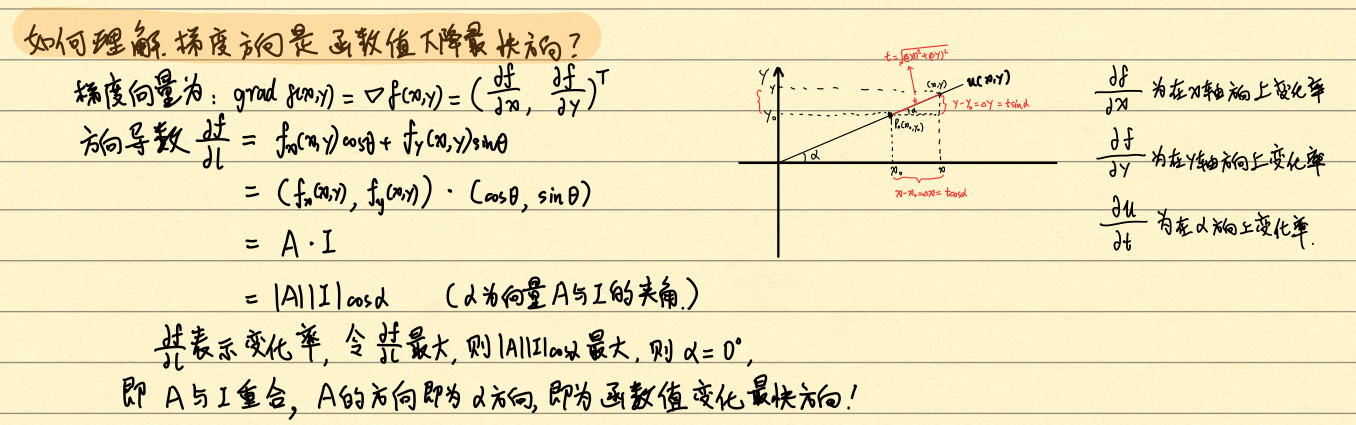 如何理解梯度方向是函数值下降最快方向?
梯度向量为: grad f(x,y) = ∇f(x,y) = (∂f/∂x, ∂f/∂y)ᵀ
方向导数 ∂f/∂l = fx(x,y)cosθ + fy(x,y)sinθ
= (fx(x,y), fy(x,y)) · (cosθ, sinθ)
= A · I
= |A||I|cosα (α为向量A与I的夹角.)
∂f/∂l 表示变化率, 令 ∂f/∂l 最大, 则|A||I|cosα最大, 则 α = 0°,
即 A与I重合, A的方向即为α方向, 即为函数值变化最快方向!
t=√(Δx)²+(Δy)²
Y
y
(x,y)
u(x,y)
y-y₀=Δy=tsinα
α
y₀
P₀(x₀,y₀)
α
x₀
x
x-x₀=Δx=tcosα
∂f/∂x 为在x轴方向上变化率
∂f/∂y 为在y轴方向上变化率
∂u/∂t 为在α方向上变化率.